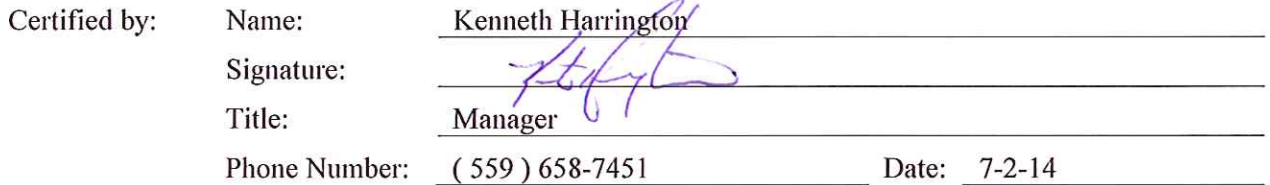 Certified by: Name: Kenneth Harrington
Signature:
Title: Manager
Phone Number: ( 559 ) 658-7451 Date: 7-2-14